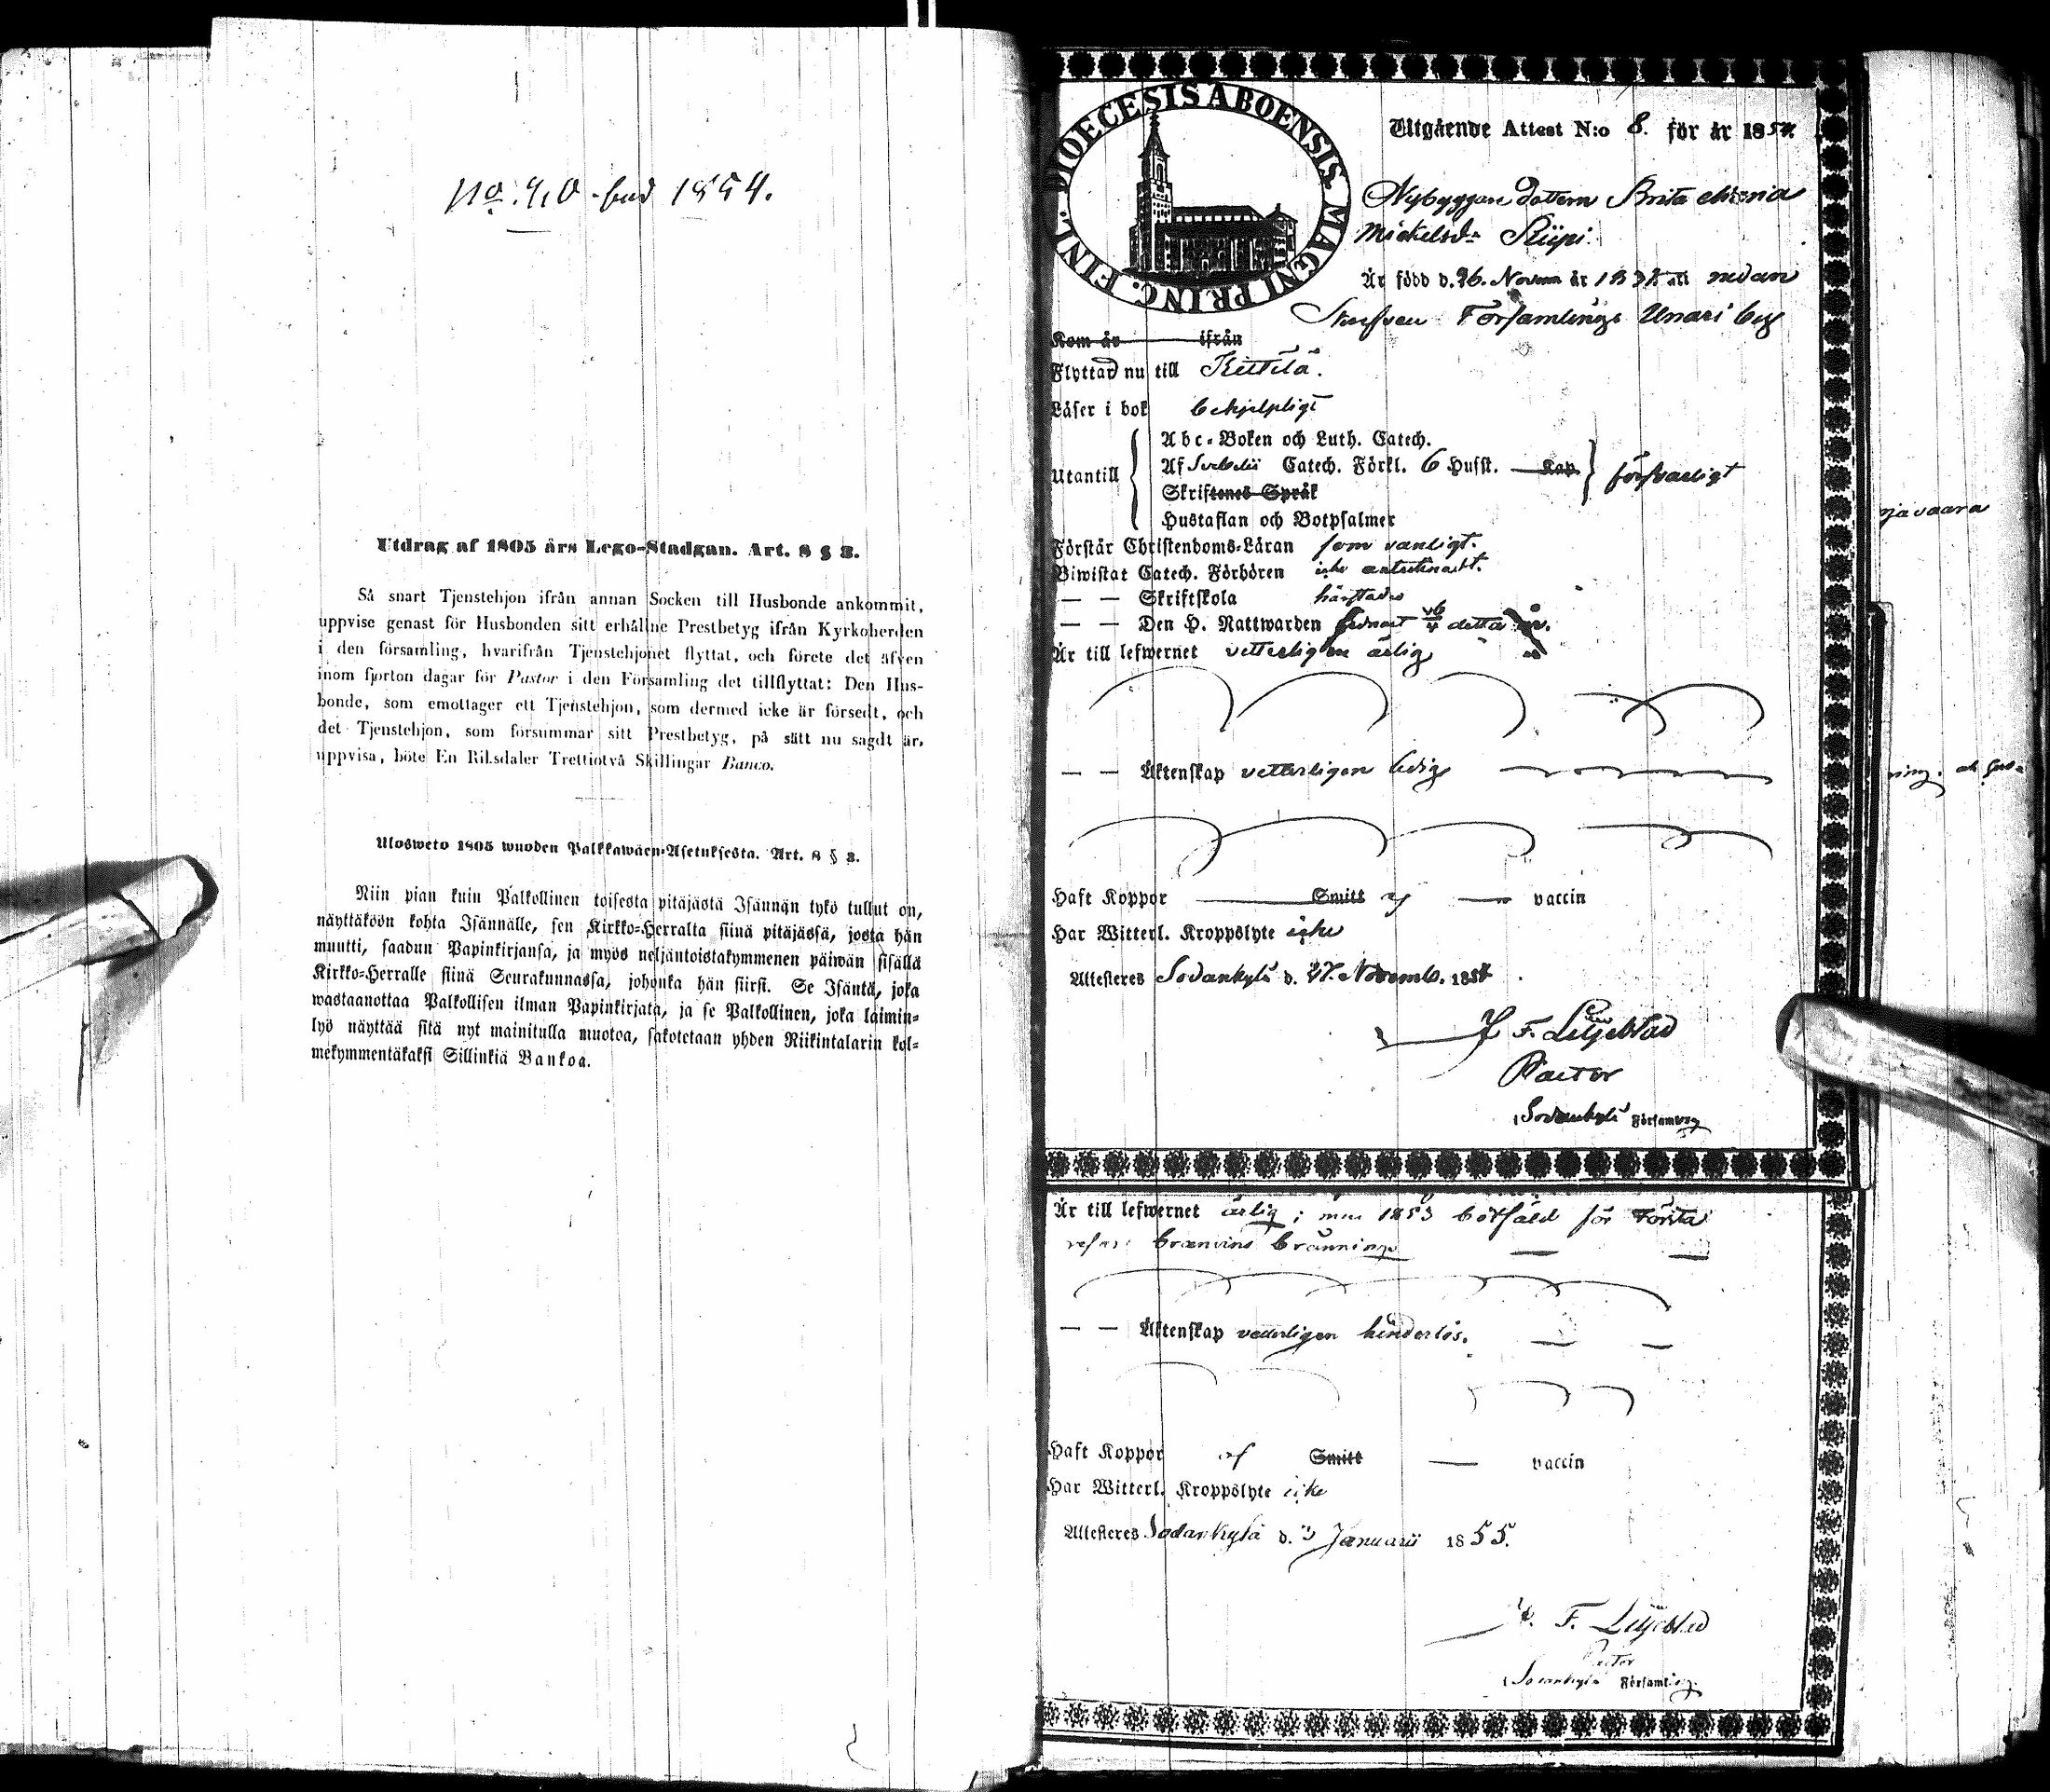 No. 40. bud 1854.
Utdrag af 1805 års Lego-Stadgan. Art. 8 § 3.
Så snart Tjenstehjon ifrån annan Socken till Husbonde ankommit,
uppvise genast för Husbonden sitt erhållne Prestbetyg ifrån Kyrkoherden
i den församling, hvarifrån Tjenstehjonet flyttat, och förete det äfven
inom fjorton dagar för Pastor i den Församling det tillflyttat: Den Hus-
bonde, som emottager ett Tjenstehjon, som dermed icke är försedt, och
det Tjenstehjon, som försummar sitt Prestbetyg, på sätt nu sagdt är,
uppvisa, böte En Riksdaler Trettiotvå Skillingar Banco.
Ulosweto 1805 wuoden Palkkawäen-Asetuksesta. Art. 8 § 3.
Niin pian kuin Palkollinen toisesta pitäjästä Isännän tykö tullut on,
näyttäköön kohta Isännälle, sen Kirkko-Herralta siinä pitäjässä, josta hän
muutti, saadun Papinkirjansa, ja myös neljäntoistakymmenen päiwän sisällä
Kirkko-Herralle siinä Seurakunnassa, johonka hän siirsi. Se Isäntä, joka
wastaanottaa Palkollisen ilman Papinkirjata, ja se Palkollinen, joka laimin-
lyö näyttää sitä nyt mainitulla muotoa, sakotetaan yhden Riikintalarin kol-
mekymmentäkaksi Sillinkiä Bankoa.
DIOECESIS ABOENSIS. MAGNI PRINC. FINL.
Utgående Attest N:o 8. för år 1854.
Nybyggare dottern Brita Maria
Mickelsdr Riipi
Är född d. 26. Novem år 183 nedan
Församlings Unari by
Kom år ifrån
Flyttad nu till Kittilä.
Läser i bok behjelpligt
Utantill
Abc-Boken och Luth. Catech.
Af Svebelii Catech. Förkl. 6 Husst. Kap
Skriftenes Språk
Hustaflan och Botpsalmer
försvarligt
Förstår Christendoms-Läran som vanligt.
Biwistat Catech. Förhören icke
— — Skriftskola
— — Den H. Nattwarden senast detta år.
Är till lefwernet vetterligen ärlig
— — Äktenskap vetterligen ledig
Haft Koppor Smitt af vaccin
Har Witterl. Kroppslyte icke
Attesteres Sodankylä d. 27. Novemb. 1854
F. Liljeblad
Pastor
i Sodankylä Församling
Är till lefwernet ärlig; men 1853 botfäld för första
resan brænvins bränning
— — Äktenskap vetterligen hinderlös.
Haft Koppor af Smitt — vaccin
Har Witterl. Kroppslyte icke
Attesteres Sodankylä d. 3 Januarii 1855.
F. Liljeblad
Pastor
i Sodankylä Församling
javaara